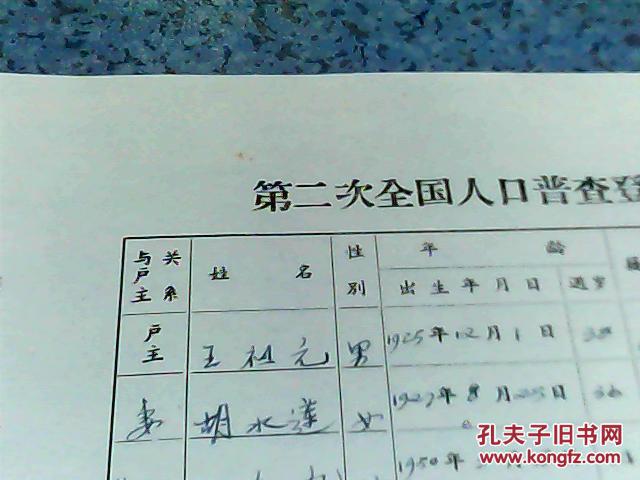 第二次全国人口普查登
与户主关系 姓名 性别 年龄
出生年月日 週岁
户主 王 元 男 1925年12月1日
妻 胡水莲 女 1927年8月25日
1950年 月
孔夫子旧书网
www.kongfz.com